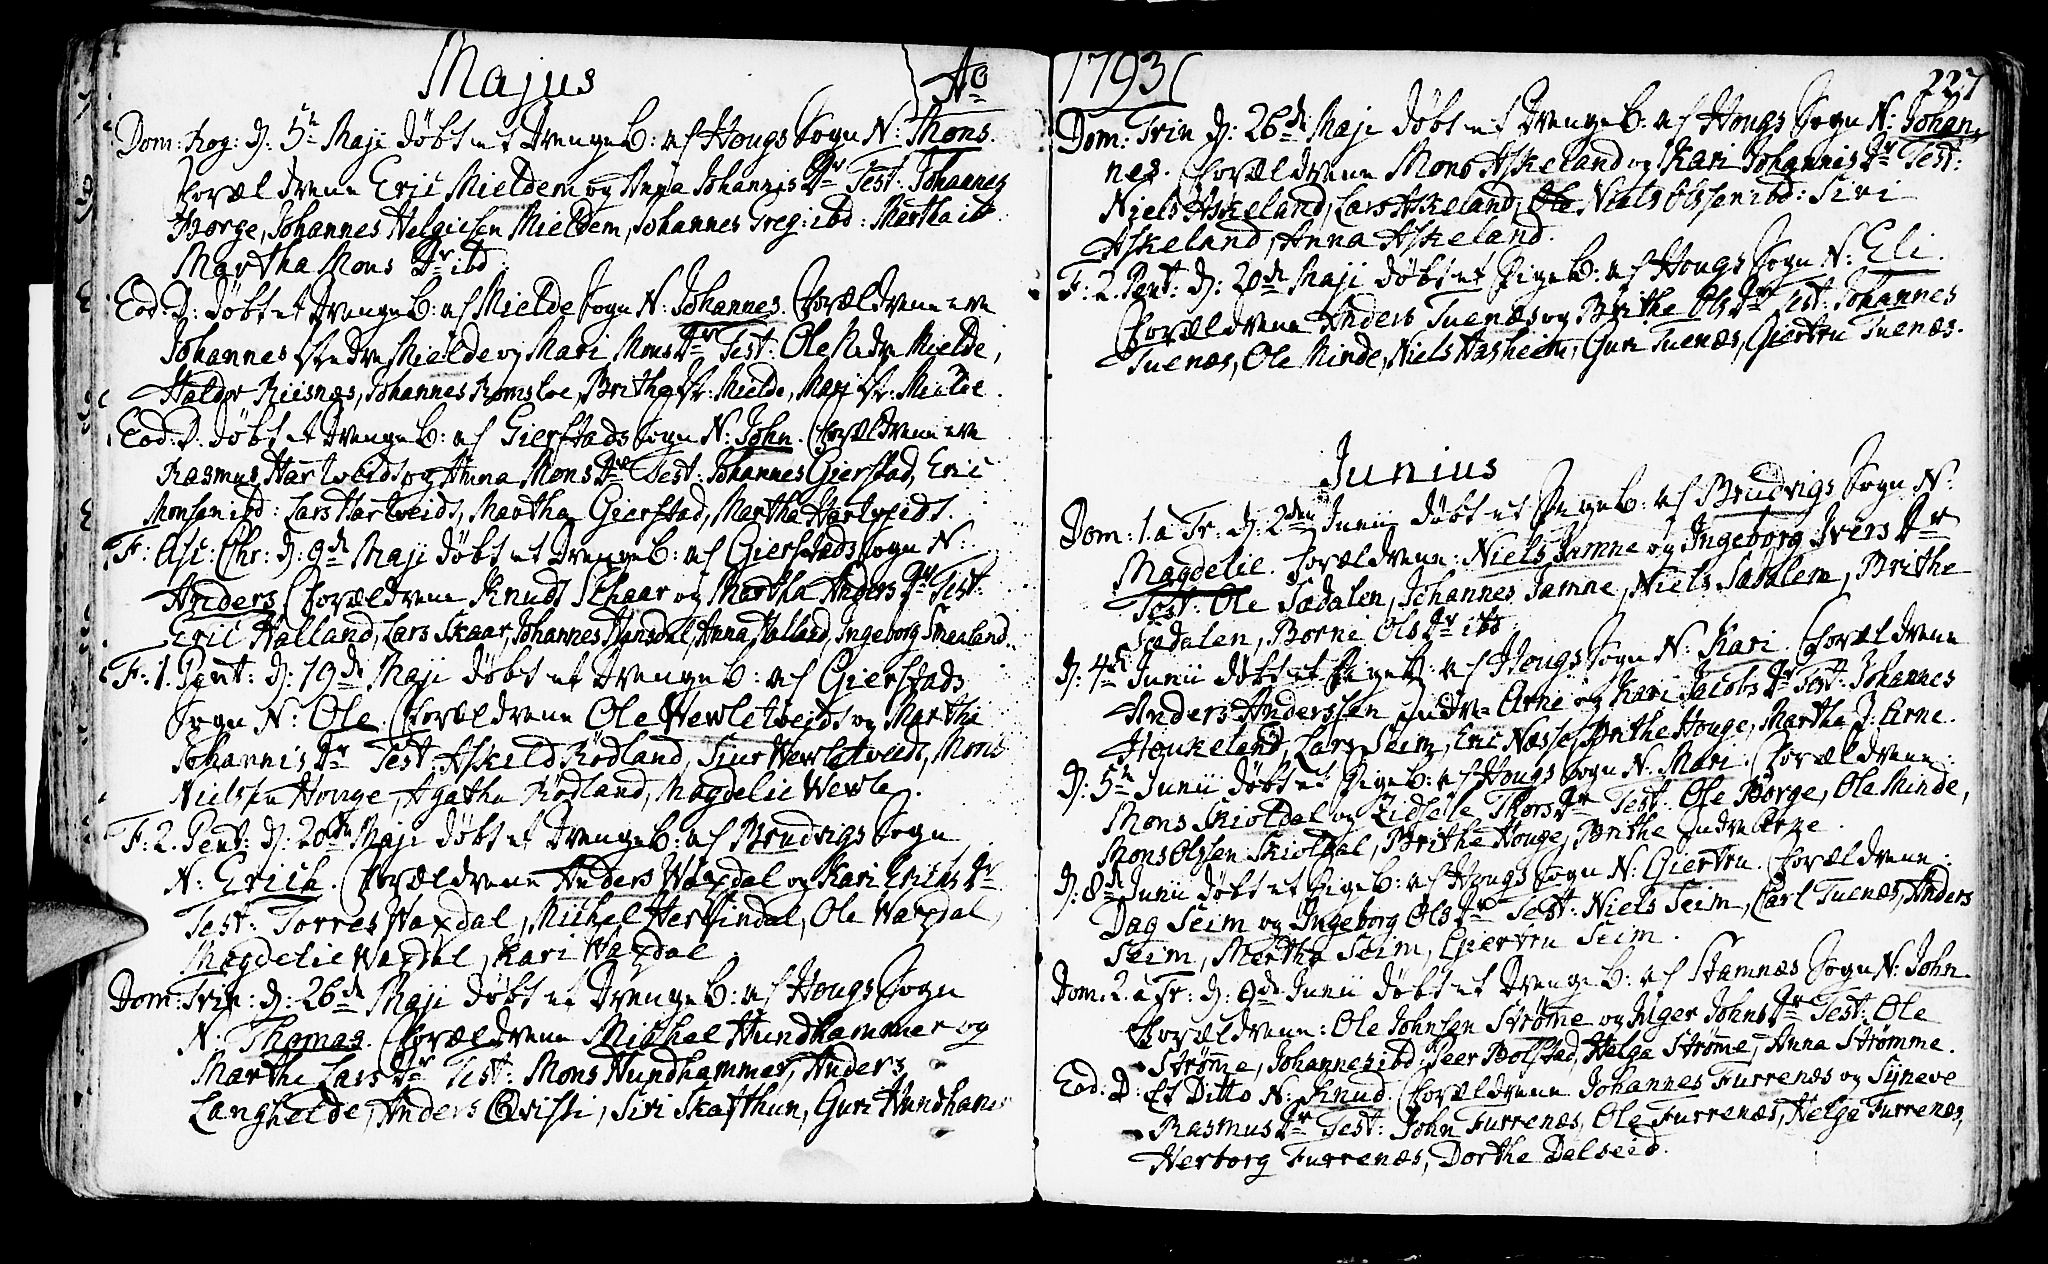 Majus Ao
Dom: Rog: D: 5te Maji døbt et DrengeB: af Hougs Sogn N: Mons.
Forældrene Eric Mieldem og Anna Johannis Dr Test: Johannes
Borge, Johannes Helgiesen Mieldem, Johannes Greg: ibd: Martha ib
Martha Mons Dr ibd
Eod: D: døbt et DrengeB: af Mielde Sogn N: Johannes. Forældrene ere
Johannes Øvre Mielde og Mari Mons Dr Test: Ole Nedre Mielde,
Haldor Riisnæs, Johannes Romsloe, Brithe Øv: Mielde, Mari Øv: Mielde.
Eod: D: døbt et DrengeB: af Gierstads Sogn N: John. Forældrene ere
Rasmus Hartveidt og Anna Mons Dr Test: Johannes Gierstad, Eric
Monsen ibd: Lars Hartveidt, Martha Gierstad, Martha Hartveidt.
F: Asc: Chr: D: 9de Maji døbt et DrengeB: af Gierstads Sogn N:
Anders Forældrene Knud Schaar og Martha Anders Dr Test:
Eric Halland, Lars Skaar, Johannes Hansdal, Anna Halland, Ingeborg Smaaland..
F: 1. Pent: D: 19de Maji døbt et DrengeB: af Gierstads
Sogn N: Ole. Forældrene Ole Wewletveidt og Martha
Johannis Dr Test: Askild Rødland, Siur Wewletveidt, Mons
Nielssen Houge, Agatha Rødland, Magdelie Wewle.
F: 2. Pent: D: 20de Maji døbt et DrengeB: af Brudvigs Sogn
N: Erich. Forældrene Anders Waxdal og Kari Erichs Dr
Test: Torres Waxdal, Michel Herfindal, Ole Waxdal,
Magdelie Waxdal, Kari Waxdal
Dom: Trin: D: 26de Maji døbt et DrengeB: af Hougs Sogn
N: Thomas. Forældrene Michel Hundhammer og
Marthe Lars Dr Test: Mons Hundhammer, Anders
Langhelde, Anders Qvisti, Siri Skafthun, Guri Hundham
1793 227
Dom: Trin D: 26de Maji døbt et DrengeB: af Hougs Sogn N: Johan,
nes. Forældrene Mons Askeland og Kari Johannis Dr Test:
Niels Askeland, Lars Askeland, Ole Niels Olssen ibd: Siri
Askeland, Anna Askeland.
F: 2. Pent: D: 20de Maji døbt et PigeB: af Hougs Sogn N: Eli.
Forældrene Anders Tuenæs og Brithe Ols Dr Test: Johannes
Tuenæs, Ole Minde, Niels Hasheim, Guri Tuenæs, Giertru Tuenæs.
Junius
Dom: 1. a Tr: D: 2den Junii døbt et PigeB: af Brudvigs Sogn N:
Magdelie. Forældrene: Niels Jamne og Ingeborg Ivers Dr
Test: Ole Sædalen, Johannes Jamne, Niels Sædalen, Brithe
Sædalen, Børni Ols Dr ibd
D: 4de Junii døbt et PigeB: af Hougs Sogn N: Kari. Forældrene
Anders Anderssen Indre Arne og Kari Jacobs Dr Test: Johannes
Houkeland, Lars Seim, Eric Næsse, Brithe Houge, Martha J: Arne.
D: 5te Junii døbt et PigeB: af Hougs Sogn N: Mari. Forældrene:
Mons Skioldal og Zidsele Thors Dr Test: Ole Borge, Ole Minde,
Mons Olssen Skioldal, Brithe Houge, Brithe Indre Arne.
D: 8de Junii døbt et PigeB: af Hougs Sogn N: Giertru. Forældrene:
Dag Seim og Ingeborg Ols Dr Test: Niels Seim, Carl Tuenæs, Anders
Seim, Martha Seim, Giertru Seim.
Dom. 2. a Tr: D: 9de Junii døbt et DrengeB: af Stamnæs Sogn N: John
Forældrene: Ole Johnsen Strøme og Inger Johns Dr Test: Ole
Strøme, Johannes ibd: Peer Bolstad, Helga Strøme, Anna Strømme.
Eod: D: Et Ditto N: Knud. Forældrene Johannes Furrenæs og Syneve
Rasmus Dr Test: John Furrenæs, Ole Furrenæs, Helga Furrenæs,
Herborg Furrenæs, Dorthe Dalseid.